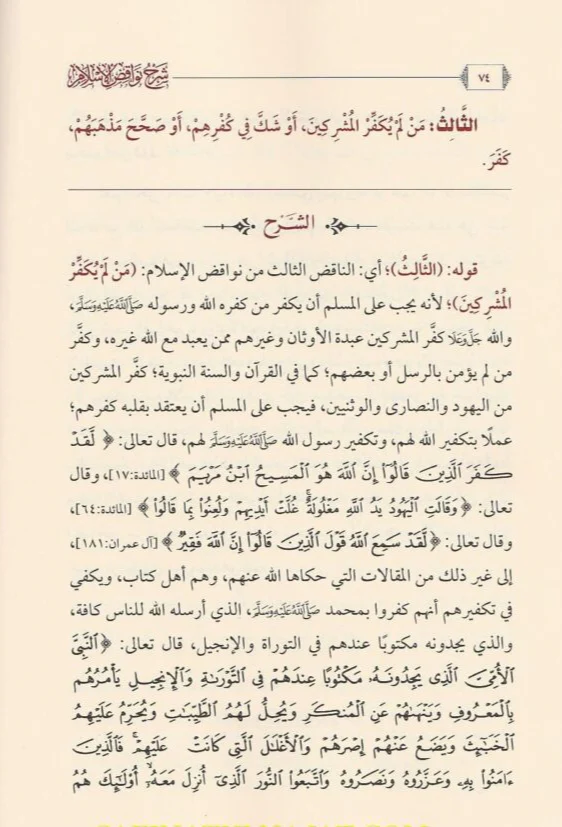 ٧٤
شرح نواقض الإسلام
الثَّالِثُ: مَنْ لَمْ يُكَفِّرْ الْمُشْرِكِينَ، أَوْ شَكَّ فِي كُفْرِهِمْ، أَوْ صَحَّحَ مَذْهَبَهُمْ،
كَفَرَ.
الشَّرْح
قوله: (الثَّالِثُ)؛ أي: الناقض الثالث من نواقض الإسلام: (مَنْ لَمْ يُكَفِّرْ
الْمُشْرِكِينَ)؛ لأنه يجب على المسلم أن يكفر من كفره الله ورسوله صَلَّى اللَّهُ عَلَيْهِ وَسَلَّمَ،
والله جَلَّ وَعَلَا كفَّر المشركين عبدة الأوثان وغيرهم ممن يعبد مع الله غيره، وكفَّر
من لم يؤمن بالرسل أو بعضهم؛ كما في القرآن والسنة النبوية؛ كفَّر المشركين
من اليهود والنصارى والوثنيين، فيجب على المسلم أن يعتقد بقلبه كفرهم؛
عملًا بتكفير الله لهم، وتكفير رسول الله صَلَّى اللَّهُ عَلَيْهِ وَسَلَّمَ لهم، قال تعالى: ﴿ لَّقَدْ
كَفَرَ الَّذِينَ قَالُوٓا إِنَّ اللَّهَ هُوَ الْمَسِيحُ ابْنُ مَرْيَمَ ﴾ [المائدة:١٧]، وقال
تعالى: ﴿ وَقَالَتِ الْيَهُودُ يَدُ اللَّهِ مَغْلُولَةٌ ۚ غُلَّتْ أَيْدِيهِمْ وَلُعِنُوا بِمَا قَالُوا ﴾ [المائدة:٦٤]،
وقال تعالى: ﴿ لَّقَدْ سَمِعَ اللَّهُ قَوْلَ الَّذِينَ قَالُوٓا إِنَّ اللَّهَ فَقِيرٌ ﴾ [آل عمران:١٨١]،
إلى غير ذلك من المقالات التي حكاها الله عنهم، وهم أهل كتاب، ويكفي
في تكفيرهم أنهم كفروا بمحمد صَلَّى اللَّهُ عَلَيْهِ وَسَلَّمَ، الذي أرسله الله للناس كافة،
والذي يجدونه مكتوبًا عندهم في التوراة والإنجيل، قال تعالى: ﴿النَّبِيَّ
الْأُمِّيَّ الَّذِي يَجِدُونَهُۥ مَكْتُوبًا عِندَهُمْ فِي التَّوْرَىٰةِ وَالْإِنجِيلِ يَأْمُرُهُم
بِالْمَعْرُوفِ وَيَنْهَىٰهُمْ عَنِ الْمُنكَرِ وَيُحِلُّ لَهُمُ الطَّيِّبَٰتِ وَيُحَرِّمُ عَلَيْهِمُ
الْخَبَٰٓئِثَ وَيَضَعُ عَنْهُمْ إِصْرَهُمْ وَالْأَغْلَٰلَ الَّتِي كَانَتْ عَلَيْهِمْ ۚ فَالَّذِينَ
ءَامَنُوا بِهِۦ وَعَزَّرُوهُ وَنَصَرُوهُ وَاتَّبَعُوا النُّورَ الَّذِيٓ أُنزِلَ مَعَهُۥٓ ۙ أُولَٰٓئِكَ هُمُ